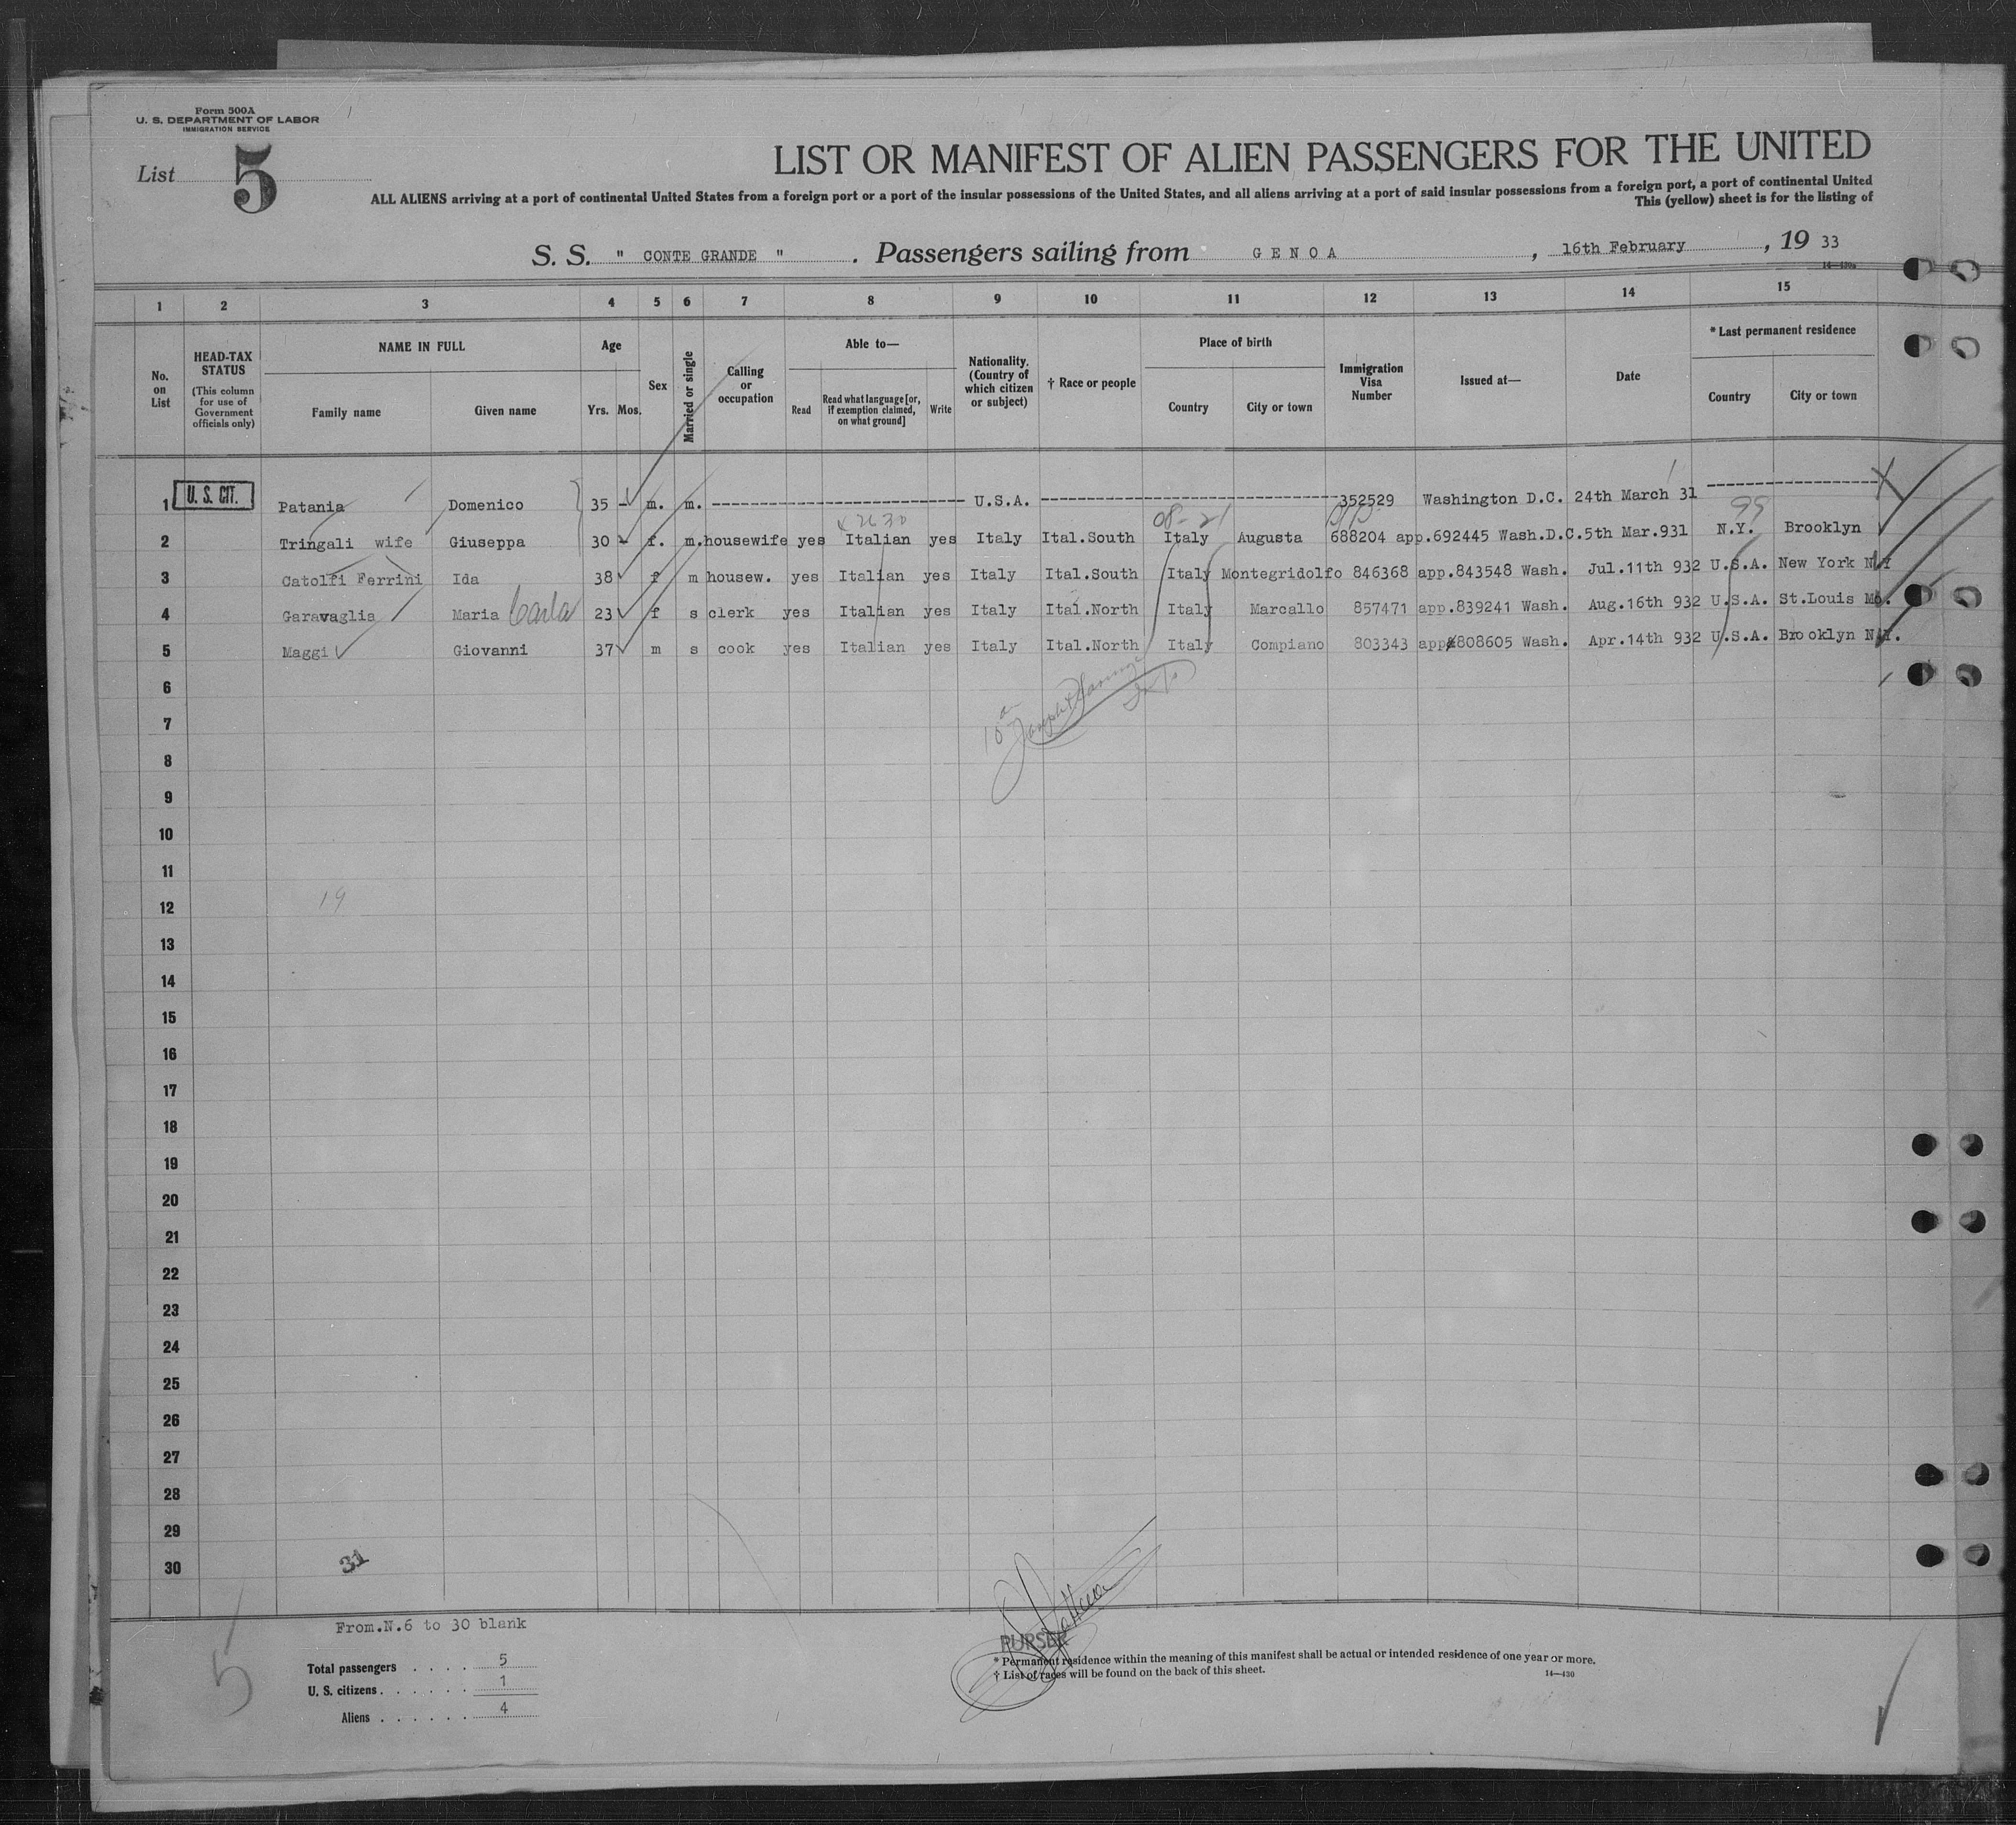 Form 500A
U. S. DEPARTMENT OF LABOR
IMMIGRATION SERVICE
List 5
LIST OR MANIFEST OF ALIEN PASSENGERS FOR THE UNITED
ALL ALIENS arriving at a port of continental United States from a foreign port or a port of the insular possessions of the United States, and all aliens arriving at a port of said insular possessions from a foreign port, a port of continental United
This (yellow) sheet is for the listing of
S. S. " CONTE GRANDE " . Passengers sailing from GENOA , 16th February , 19 33
1 2 3 4 5 6 7 8 9 10 11 12 13 14 15
No. on List
HEAD-TAX STATUS
(This column for use of Government officials only)
NAME IN FULL
Family name Given name
Age
Yrs. Mos.
Sex
Married or single
Calling or occupation
Able to—
Read Read what language [or, if exemption claimed, on what ground] Write
Nationality. (Country of which citizen or subject)
† Race or people
Place of birth
Country City or town
Immigration Visa Number
Issued at—
Date
* Last permanent residence
Country City or town
1 U. S. CIT. Patania Domenico 35 - m. m. U.S.A. 352529 Washington D.C. 24th March 31
x 2630 08-21 99
2 Tringali wife Giuseppa 30 - f. m. housewife yes Italian yes Italy Ital.South Italy Augusta 688204 app.692445 Wash.D.C. 5th Mar.931 N.Y. Brooklyn
3 Catolfi Ferrini Ida 38 f m housew. yes Italian yes Italy Ital.South Italy Montegridolfo 846368 app.843548 Wash. Jul.11th 932 U.S.A. New York N.Y
4 Garavaglia Maria Carla 23 f s clerk yes Italian yes Italy Ital.North Italy Marcallo 857471 app.839241 Wash. Aug.16th 932 U.S.A. St.Louis Mo.
5 Maggi Giovanni 37 m s cook yes Italian yes Italy Ital.North Italy Compiano 803343 app.808605 Wash. Apr.14th 932 U.S.A. Brooklyn N.Y.
6
7
8
9
10
11
12
19
13
14
15
16
17
18
19
20
21
22
23
24
25
26
27
28
29
30
31
From.N.6 to 30 blank
5
Total passengers . . . . 5
U. S. citizens . . . . . . 1
Aliens . . . . . . 4
PURSER
* Permanent residence within the meaning of this manifest shall be actual or intended residence of one year or more.
† List of races will be found on the back of this sheet.
14—430